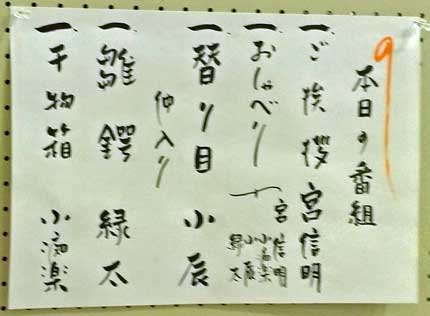 本日の番組
一 ご挨拶 宮信明
一 おしゃべり 宮信明
小痴楽
小辰
緑太
一 替り目 小辰
仲入り
一 雛鍔 緑太
一 干物箱 小痴楽